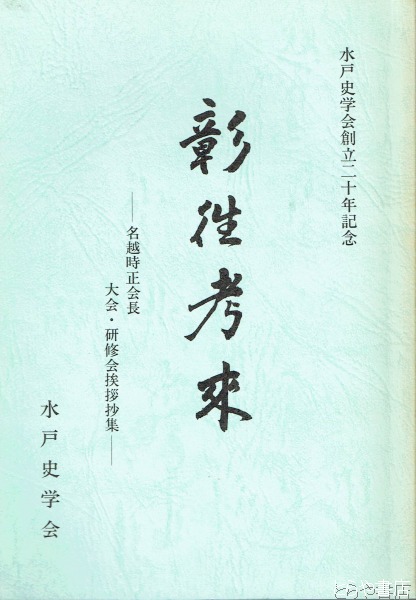 水戸史学会創立二十年記念
彰徃考來
――名越時正会長
大会・研修会挨拶抄集――
水戸史学会
とらや書店